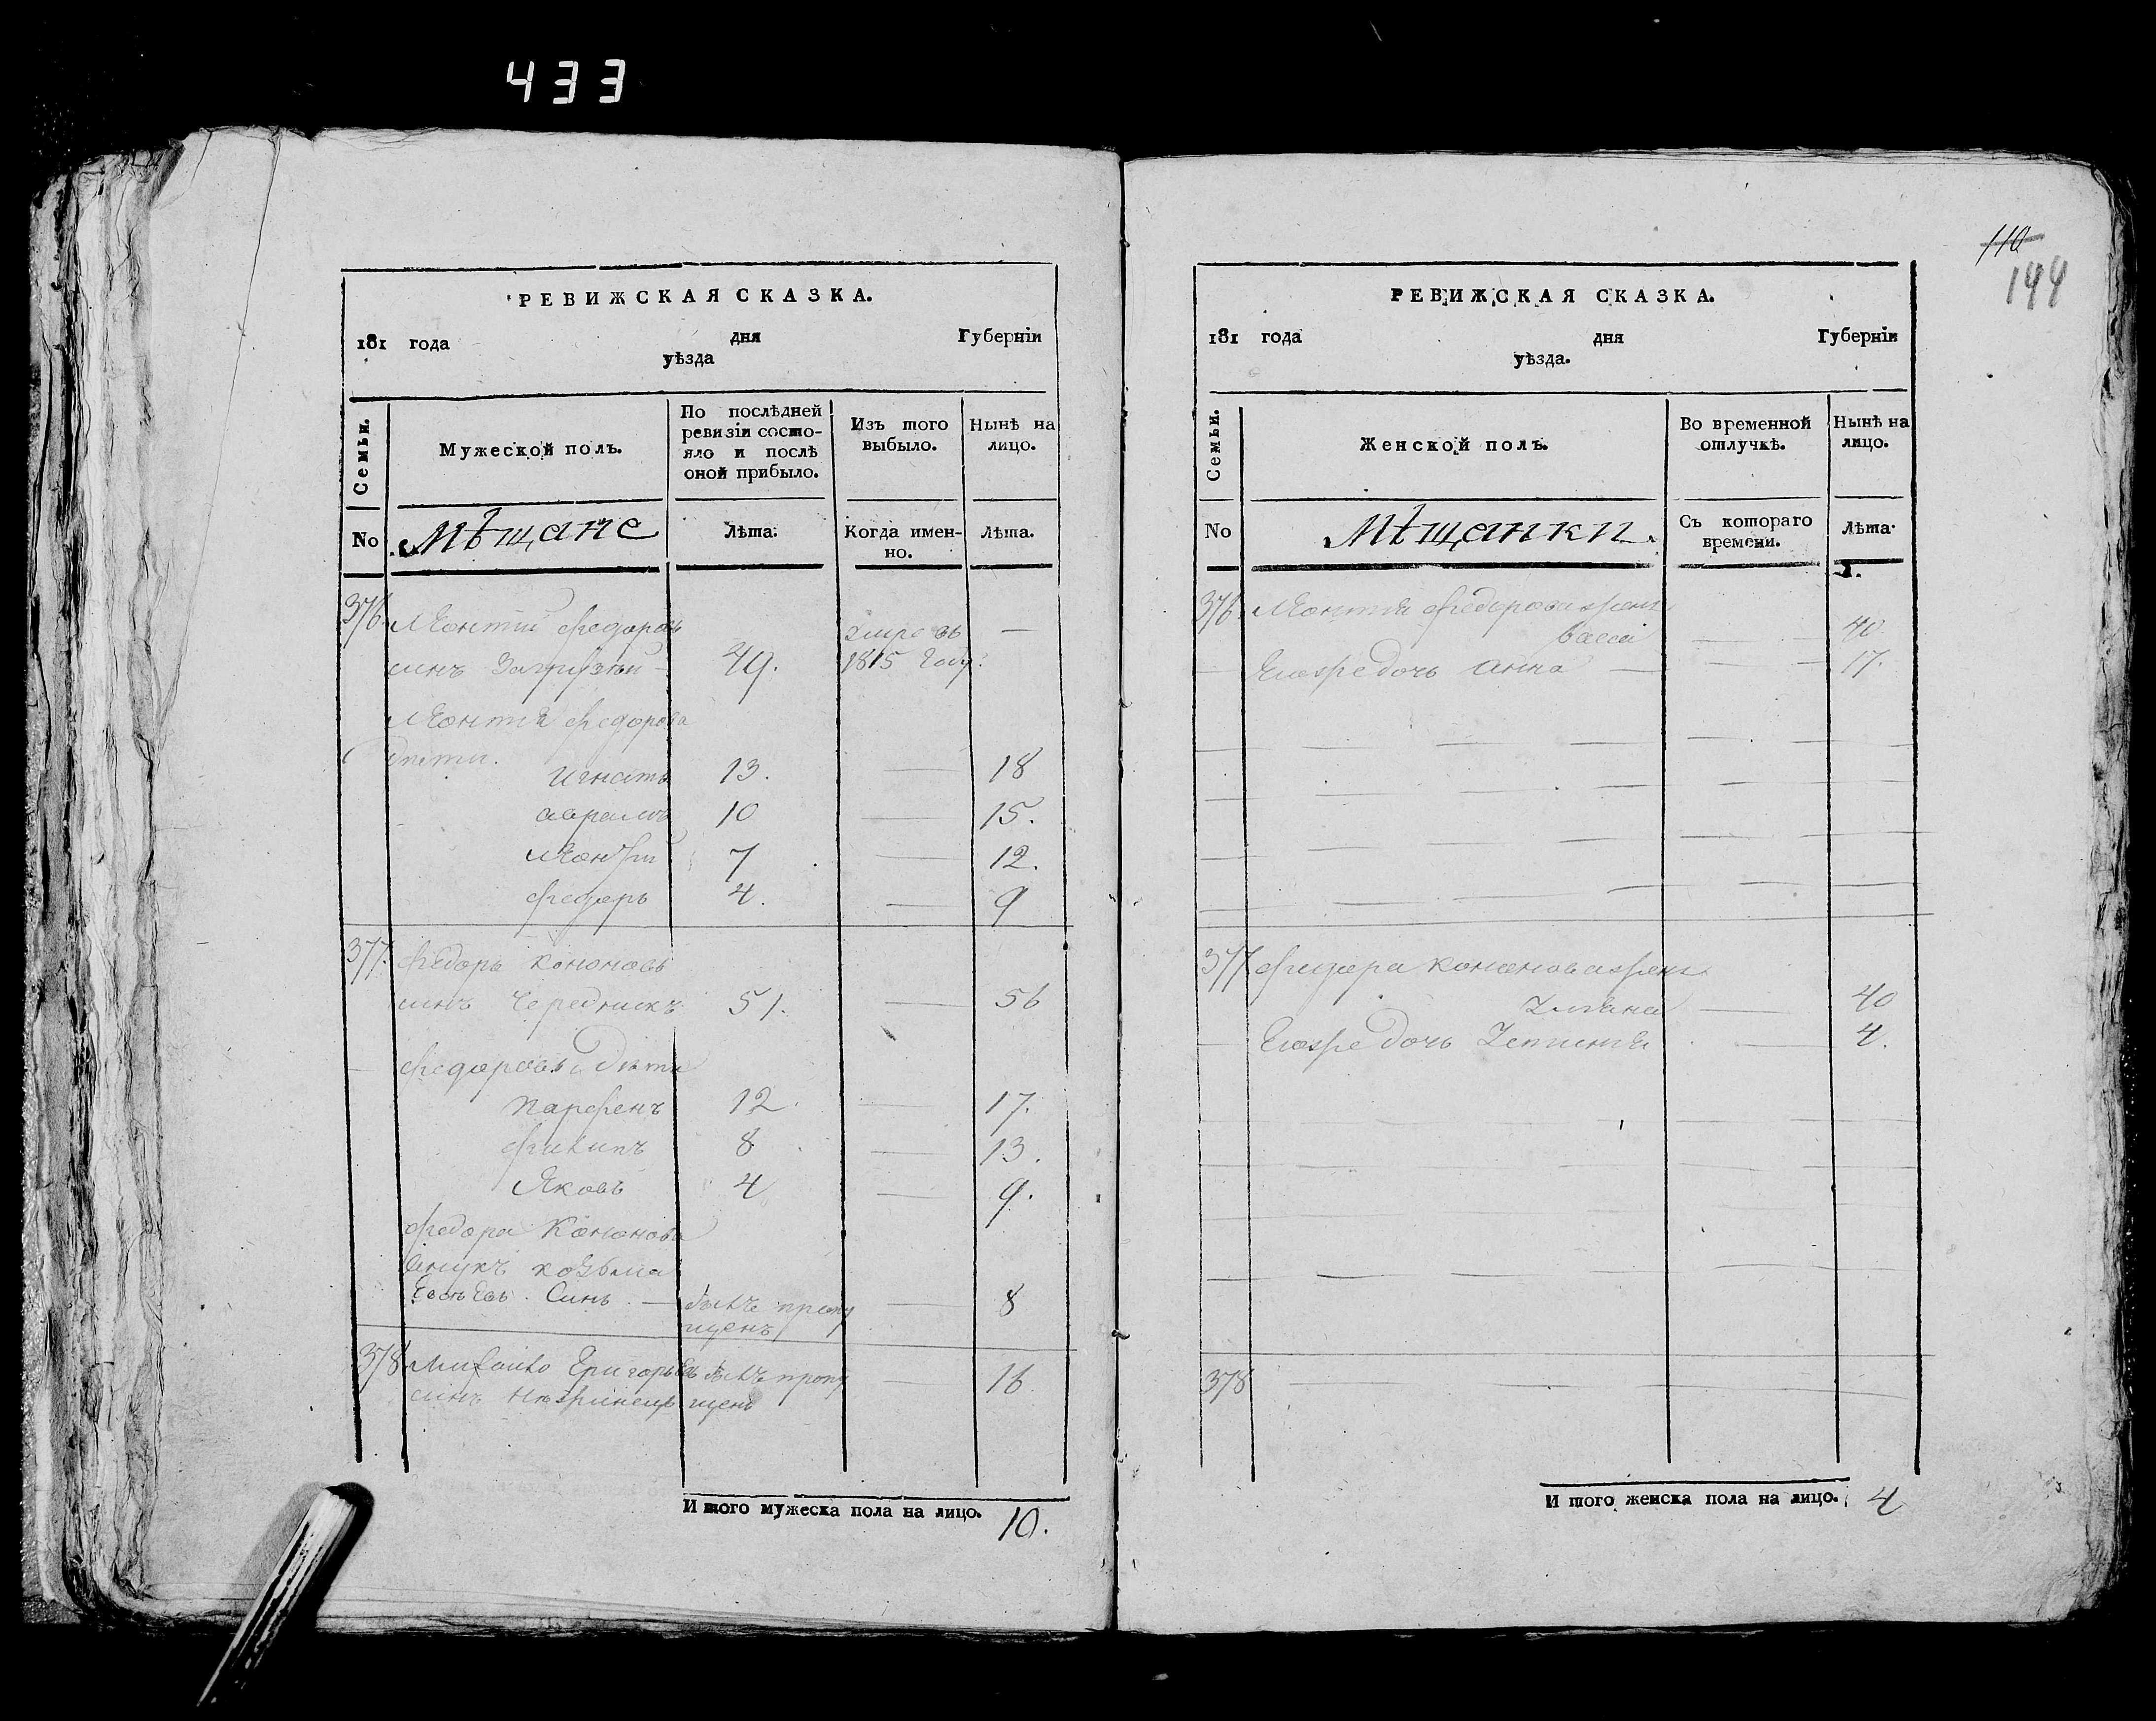 433
РЕВИЖСКАЯ СКАЗКА.
181 года дня Губерніи
уѣзда
Семьи.
Мужеской полъ.
По послѣдней ревизіи состояло и послѣ оной прибыло.
Изъ того выбыло.
Нынѣ на лицо.
No
Мѣщане
Лѣта.
Когда именно.
Лѣта.
376 Леонтий Федоровъ умре въ —
синъ 49. 1815 году.
Леонтия Федорова
дѣти.
Игнатъ 13. — 18
аврамъ 10 — 15.
Леонтий 7 — 12.
Федоръ 4. — 9
377. Федоръ Кононовъ
синъ Чередникъ 51. — 56
Федоровы дѣти
Парфенъ 12. — 17.
Филипъ 8 — 13.
Яковъ 4 — 9.
Федора Кононова
внукъ козьма
Синъ — былъ пропу — 8
щенъ
378 Михайло Григорьевъ былъ пропу — 16
синъ щенъ
И того мужеска пола на лицо. 10.
110
144
РЕВИЖСКАЯ СКАЗКА.
181 года дня Губерніи
уѣзда.
Семьи.
Женской полъ.
Во временной отлучкѣ.
Нынѣ на лицо.
No
Мѣщанки.
Съ котораго времени.
Лѣта.
376 Леонтия Федорова жена
васса — 40
Еюже дочь анна — — 17.
377 Федора Кононова жена
Улияна — 40
Еюже дочь — 4.
378 —
И того женска пола на лицо. 4